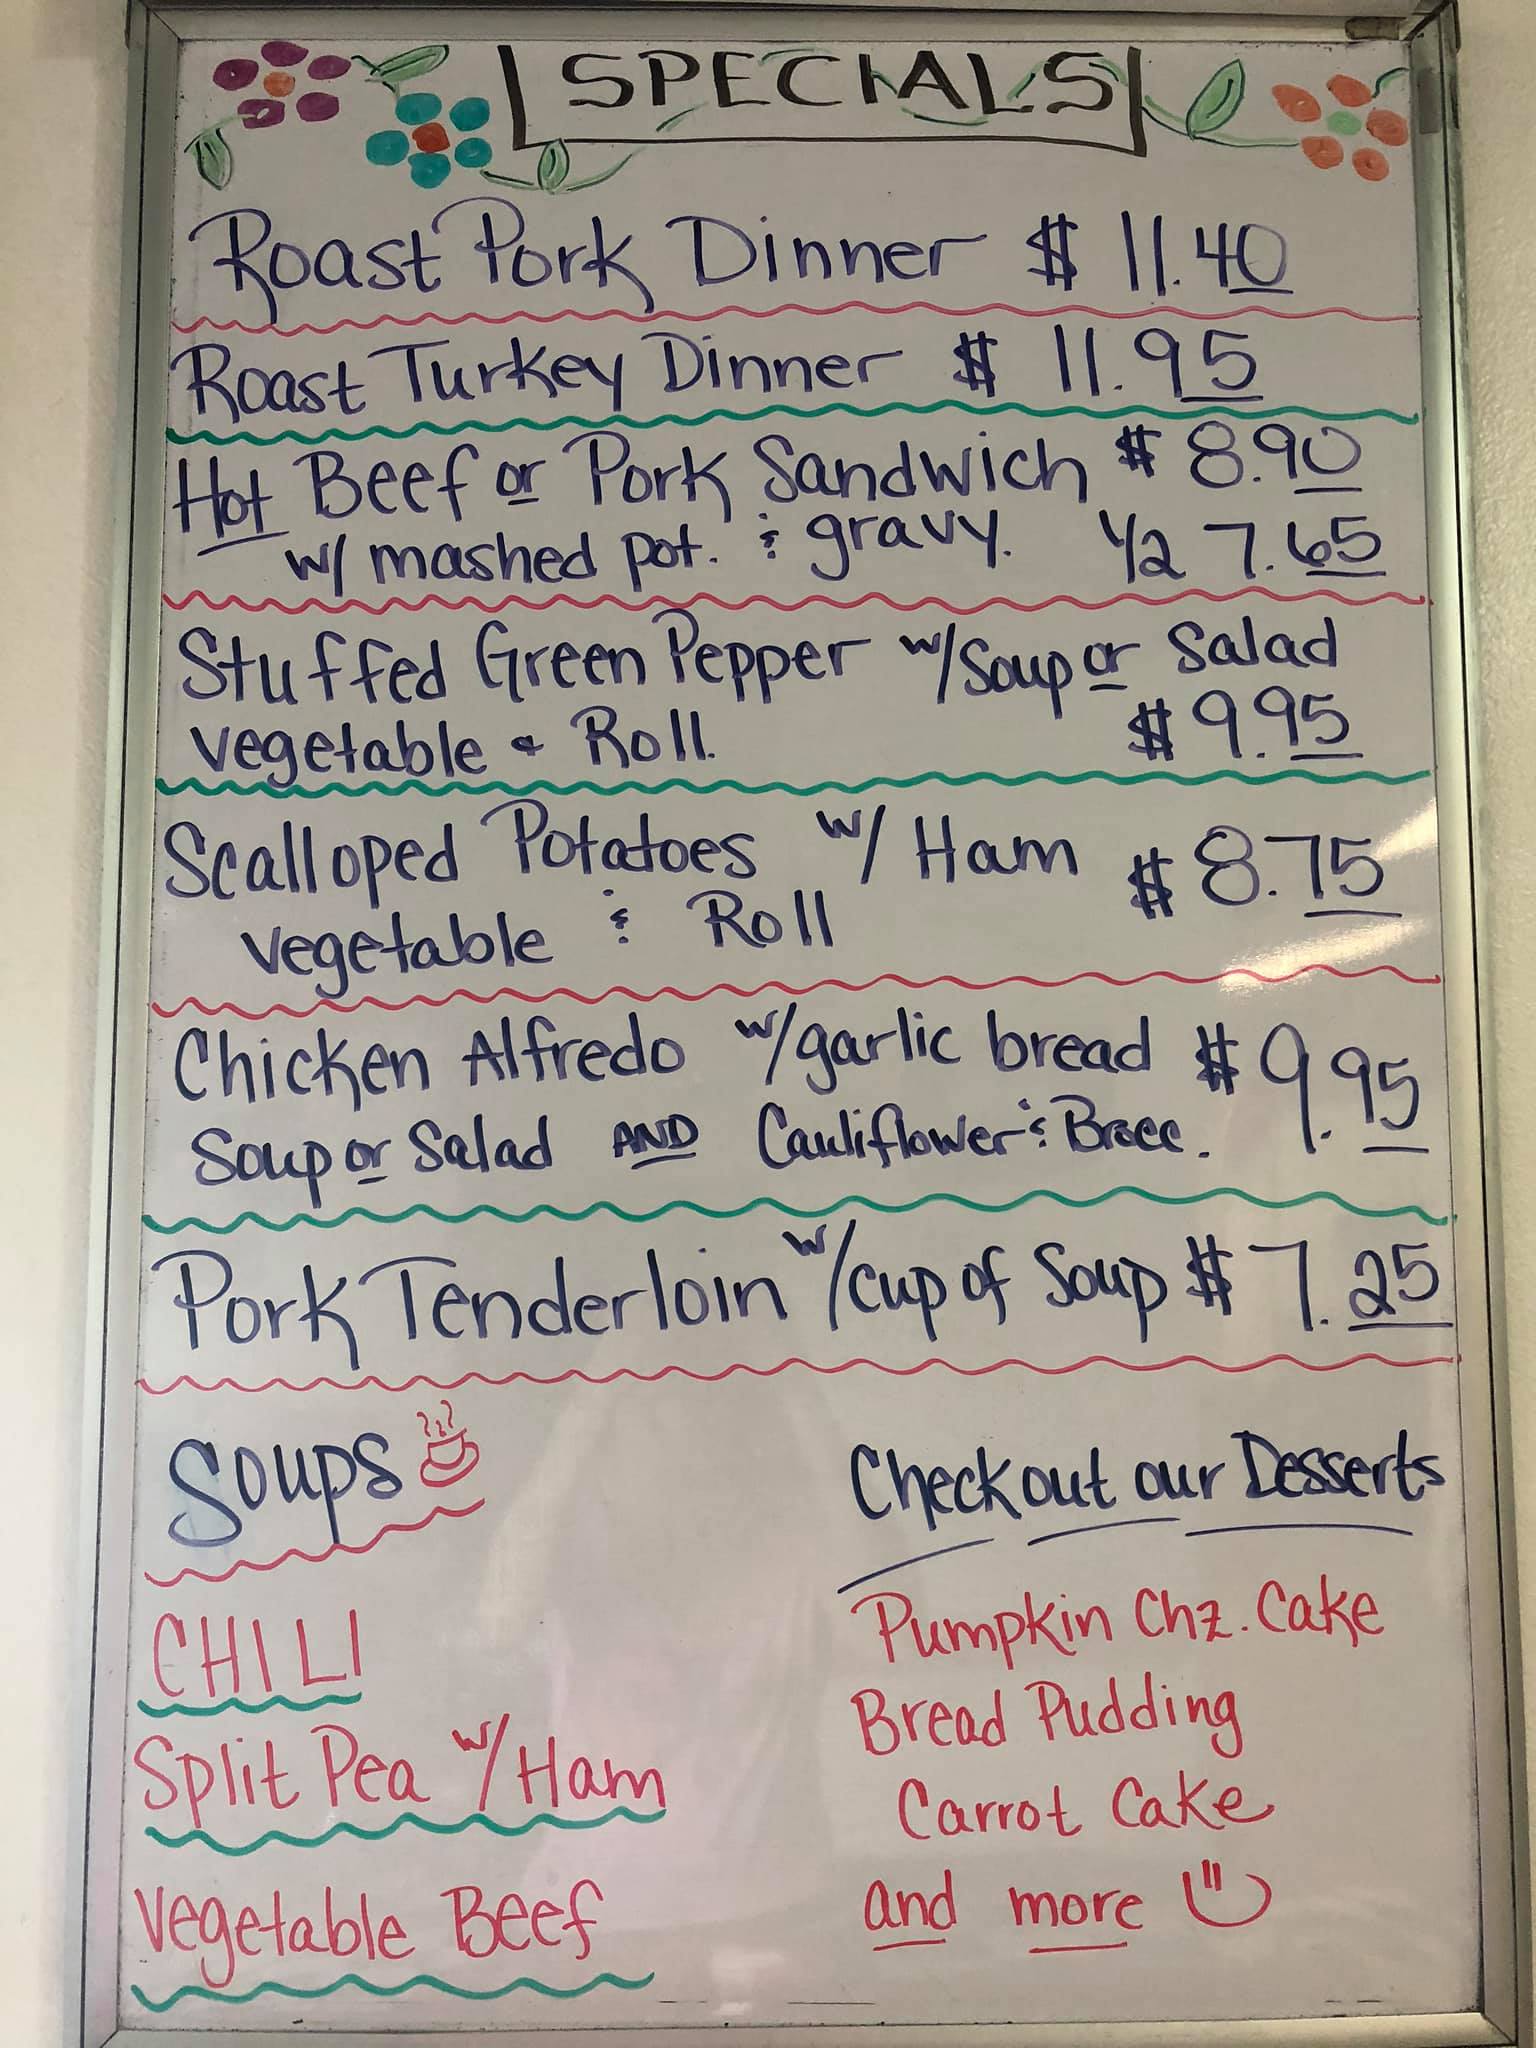 SPECIALS
Roast Pork Dinner $ 11.40
Roast Turkey Dinner $ 11.95
Hot Beef or Pork Sandwich $ 8.90
w/ mashed pot. & gravy. 1/2 7.65
Stuffed Green Pepper w/Soup or Salad
vegetable & Roll. $ 9.95
Scalloped Potatoes w/ Ham $ 8.75
vegetable & Roll
Chicken Alfredo w/garlic bread $ 9.95
Soup or Salad AND Cauliflower & Brocc.
Pork Tenderloin w/cup of Soup $ 7.25
Soups
CHILI
Split Pea w/Ham
Vegetable Beef
Check out our Desserts
Pumpkin Chz. Cake
Bread Pudding
Carrot Cake
and more